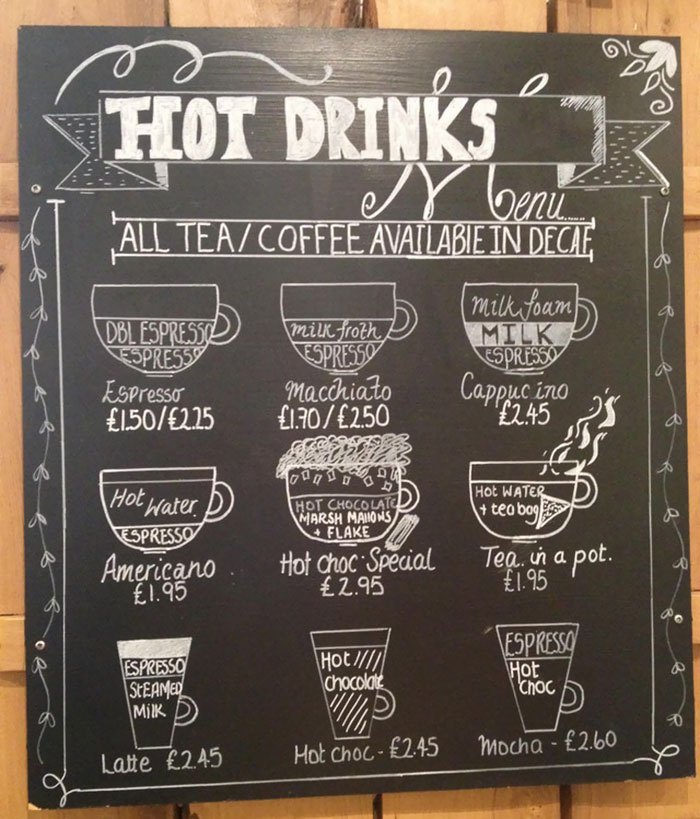 HOT DRINKS
Menu......
ALL TEA/COFFEE AVAILABLE IN DECAF
DBL ESPRESSO
ESPRESSO
Espresso
£1.50/£2.25
milk froth
ESPRESSO
Macchiato
£1.70/£2.50
Milk foam
MILK
ESPRESSO
Cappucino
£2.45
Hot Water
ESPRESSO
Americano
£1.95
HOT CHOCOLATE
MARSH MALLOWS
+ FLAKE
Hot choc Special
£2.95
HOT WATER
+ tea bag
Tea in a pot.
£1.95
ESPRESSO
STEAMED
MILK
Latte £2.45
Hot
chocolate
Hot choc - £2.45
ESPRESSO
Hot
choc
Mocha - £2.60